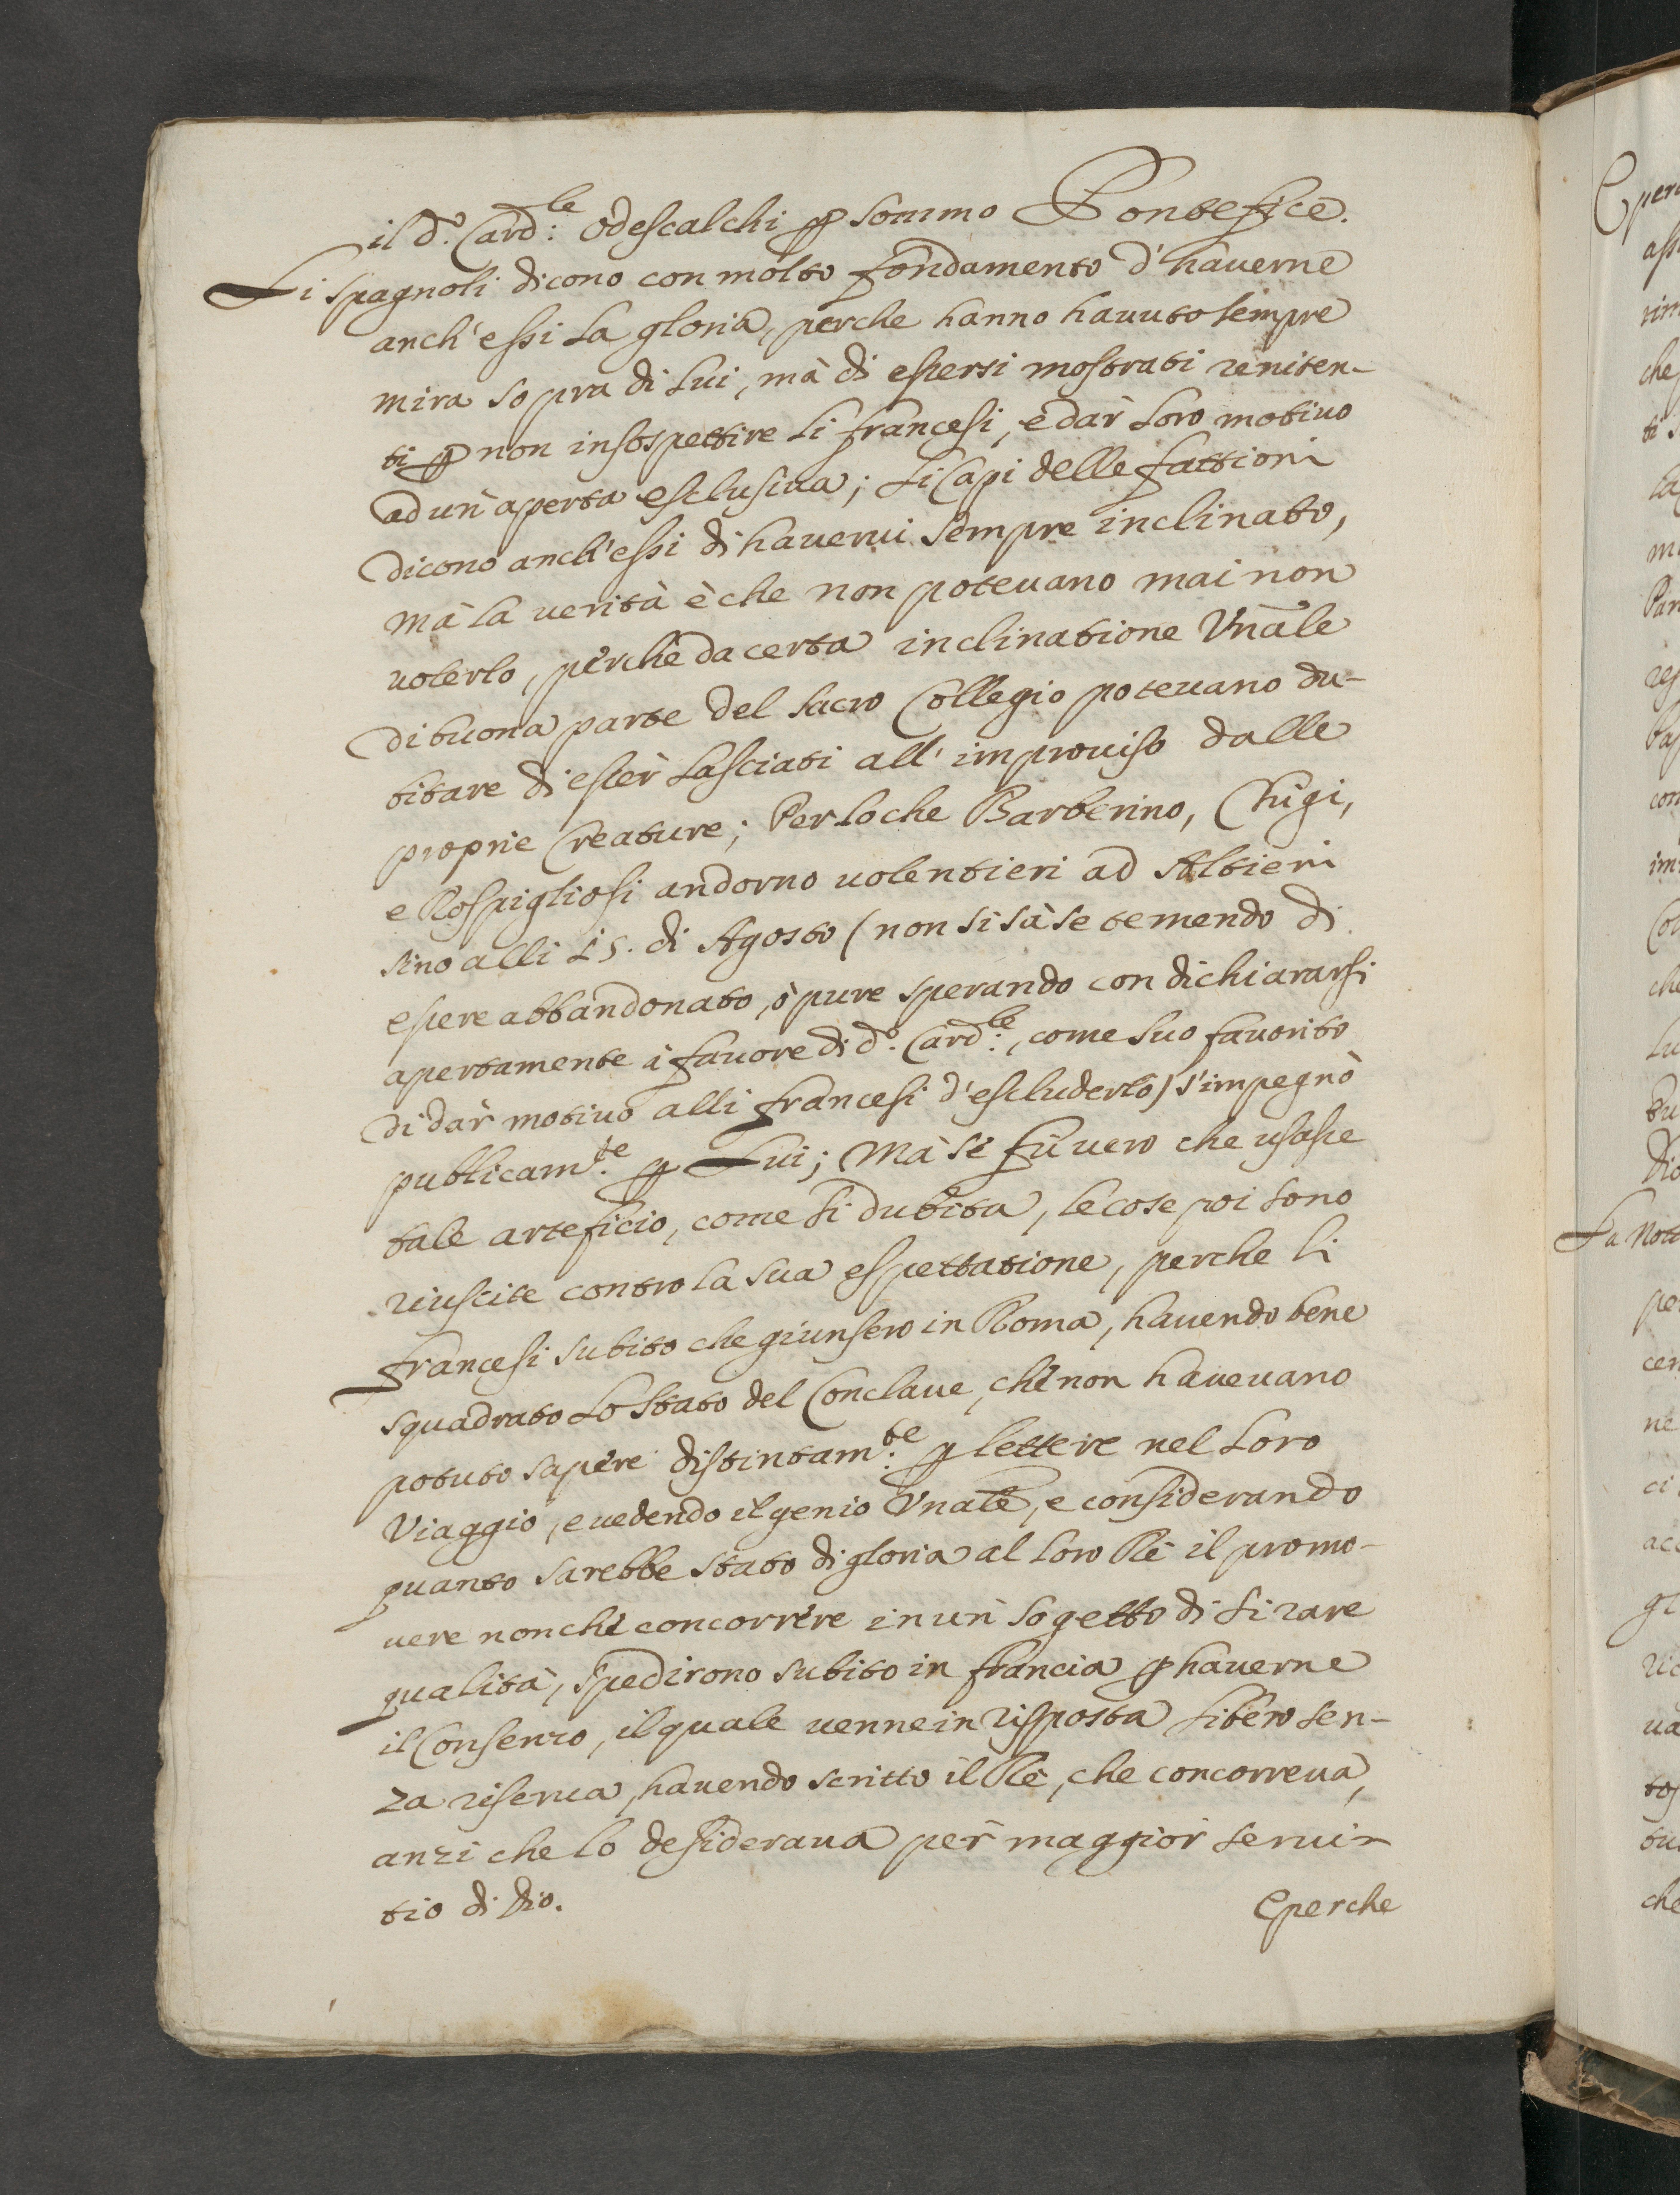 il d.º Card:le Odescalchi ꝑ sommo Pontefice.
Li Spagnoli dicono con molto fondamento d'hauerne
anch'essi la gloria, perche hanno hauuto sempre
mira sopra di Lui, mà di essersi mostrati reniten-
ti ꝑ non insospettire li francesi, e dar loro motiuo
ad un' aperta esclusiua; Li Capi delle fattioni
dicono anch'essi di hauerui sempre inclinato,
mà la uerità è che non poteuano mai non
uolerlo, perche da certa inclinatione Vnãle
di buona parte del Sacro Collegio poteuano du-
bitare di esser lasciati all'improuiso dalle
proprie Creature; Perloche Barberino, Chigi,
e Rospigliosi andorno uolentieri ad Altieri
sino alli 15. di Agosto (non si sà se temendo di
essere abbandonato, ò pure sperando con dichiararsi
apertamente à fauore di d.º Card:le, come suo fauorito
di dar motiuo alli francesi d'escluderlo) s'impegnò
publicam:te ꝑ Lui; Mà se fù uero che usasse
tale arteficio, come si dubita, le cose poi sono
riuscite contro la sua espettatione, perche li
francesi subito che giunsero in Roma, hauendo bene
squadrato lo stato del Conclaue, che non haueuano
potuto sapere distintam:te ꝑ lettere nel loro
Viaggio, e uedendo il genio Vnãle, e considerando
quanto sarebbe stato di gloria al loro Rè il promo-
uere non che concorrere in un sogetto di si rare
qualità, spedirono subito in francia ꝑ hauerne
il Consenso, il quale uenne in risposta libero sen-
za riserua, hauendo scritto il Rè, che concorreua,
anzi che lo desideraua per maggior serui-
tio di Dio.
E perche